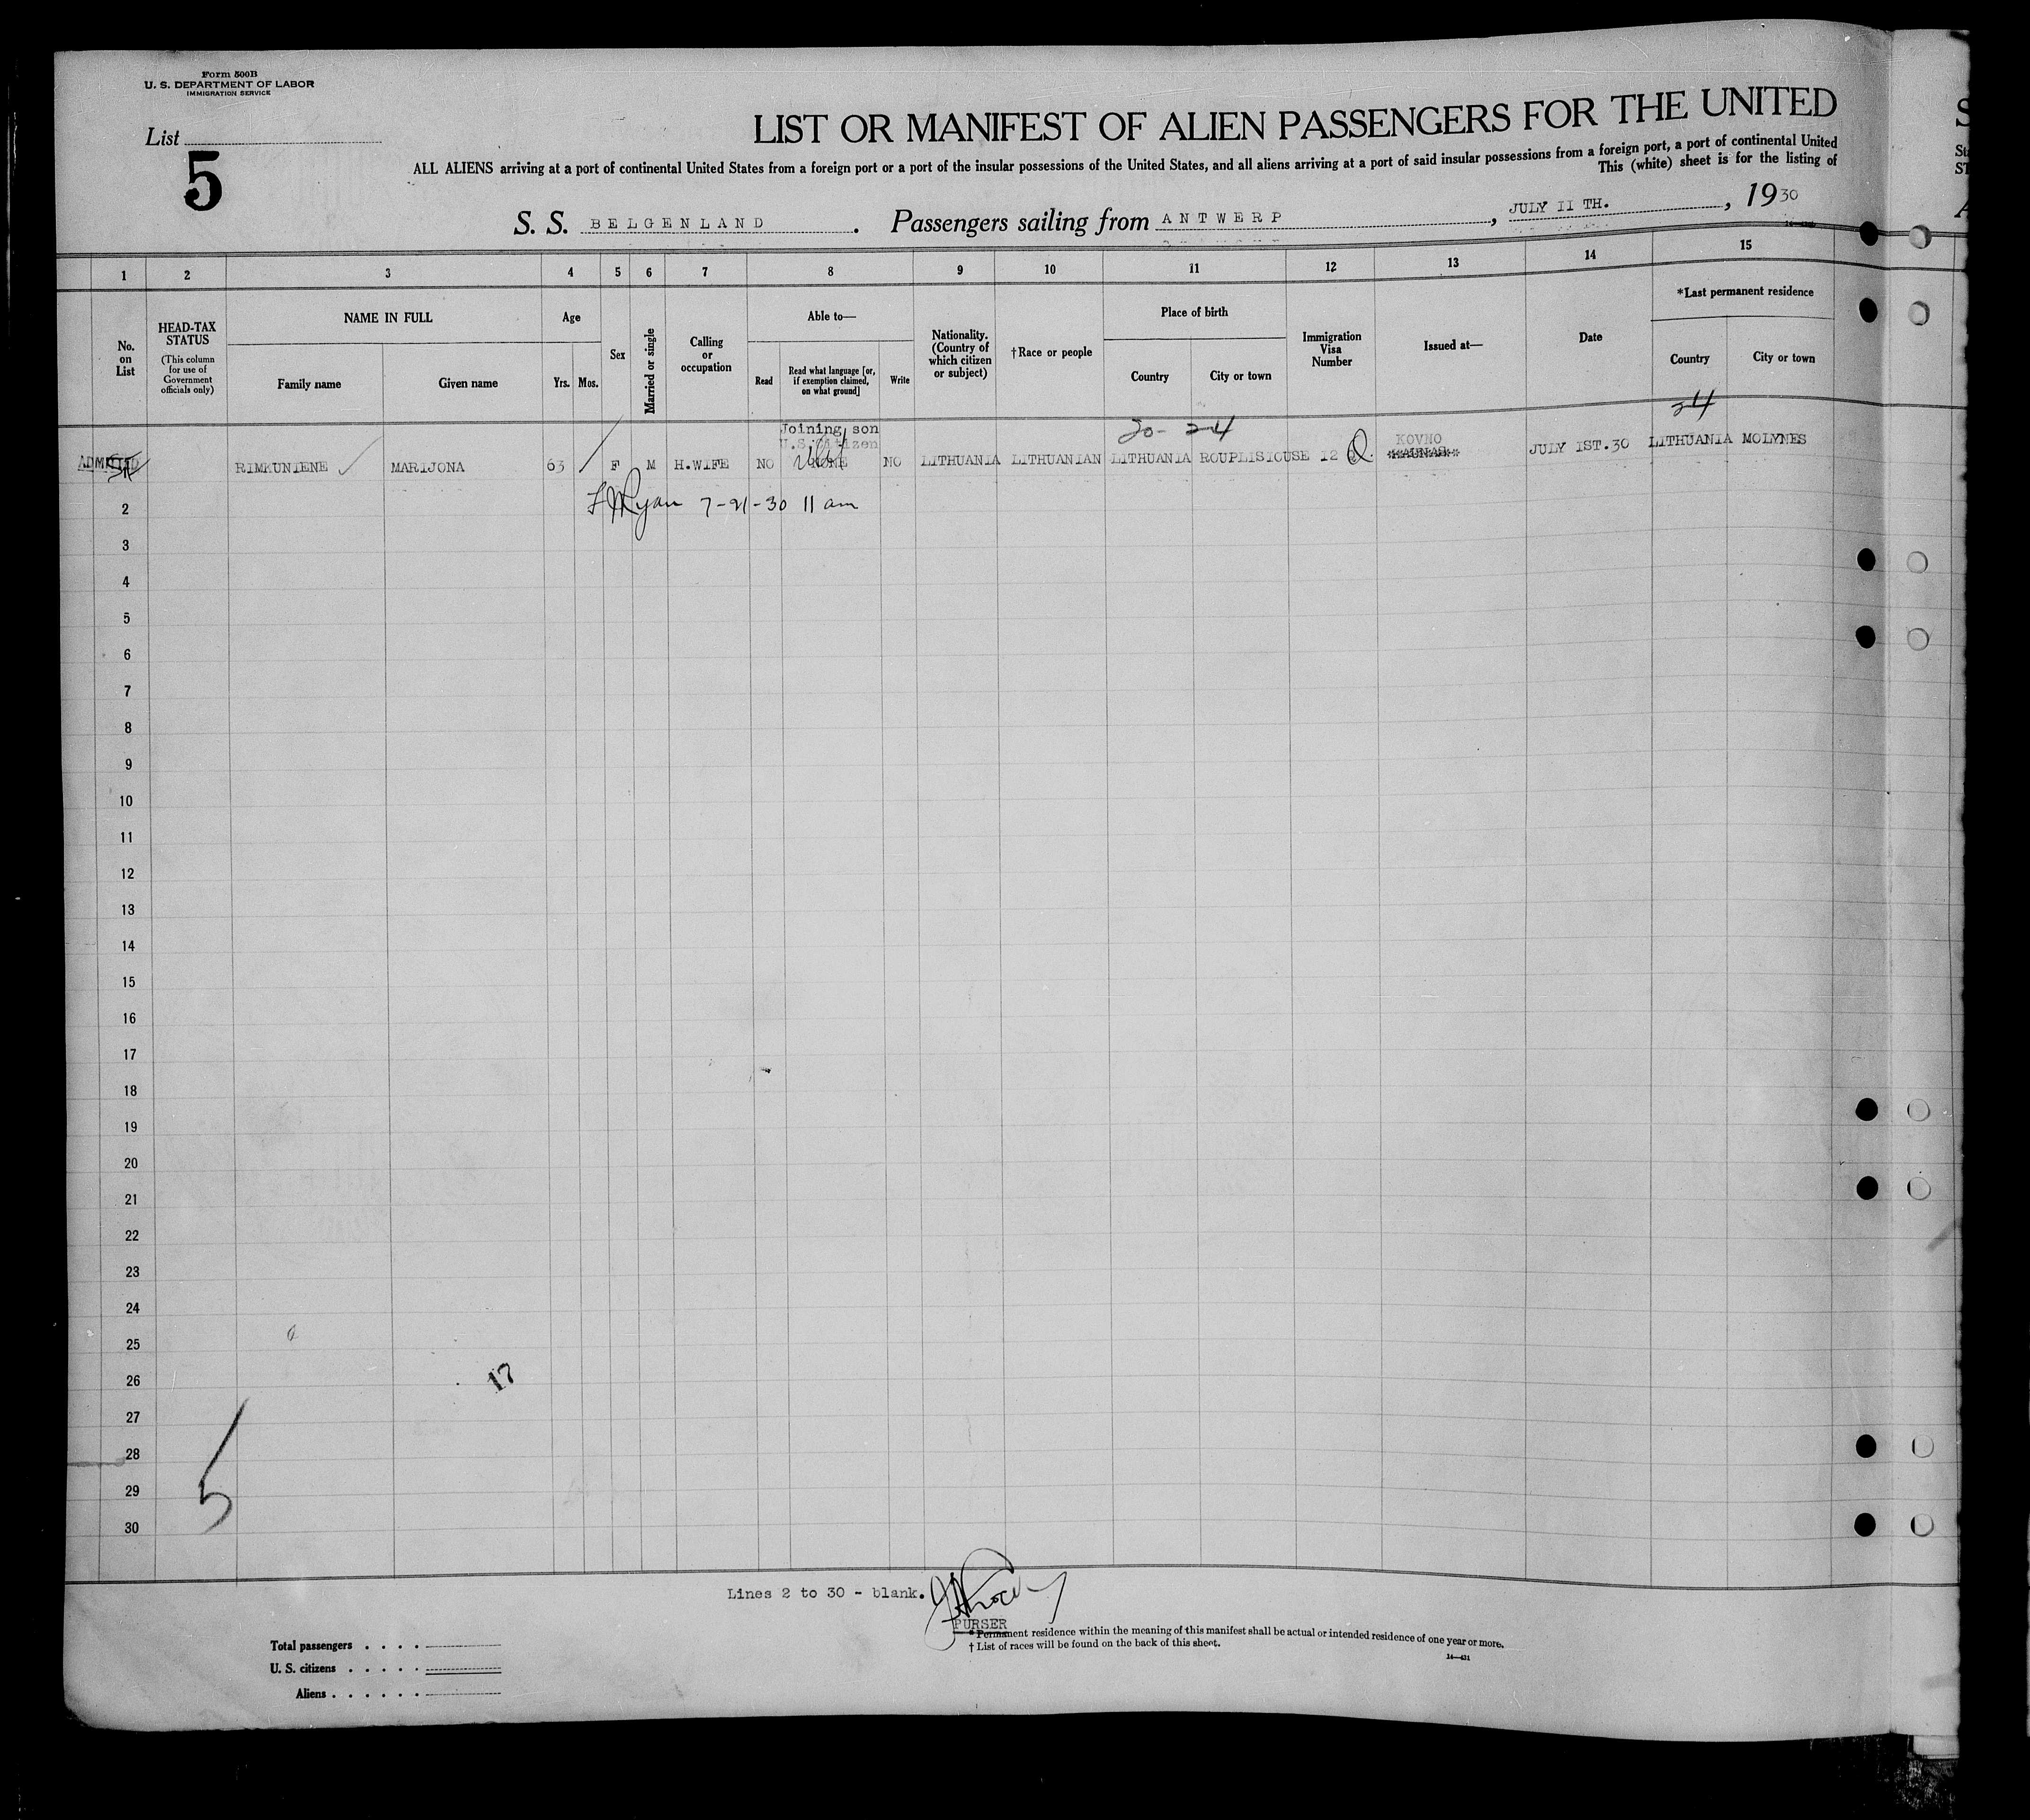 Form 500B
U. S. DEPARTMENT OF LABOR
IMMIGRATION SERVICE
List
5
LIST OR MANIFEST OF ALIEN PASSENGERS FOR THE UNITED
ALL ALIENS arriving at a port of continental United States from a foreign port or a port of the insular possessions of the United States, and all aliens arriving at a port of said insular possessions from a foreign port, a port of continental United
This (white) sheet is for the listing of
S. S. BELGENLAND. Passengers sailing from ANTWERP, JULY II TH., 1930
1 2 3 4 5 6 7 8 9 10 11 12 13 14 15
No. on List
HEAD-TAX STATUS
(This column for use of Government officials only)
NAME IN FULL
Family name
Given name
Age
Yrs.
Mos.
Sex
Married or single
Calling or occupation
Able to—
Read
Read what language [or, if exemption claimed, on what ground]
Write
Nationality. (Country of which citizen or subject)
†Race or people
Place of birth
Country
City or town
Immigration Visa Number
Issued at—
Date
*Last permanent residence
Country
City or town
20- 24
24
Joining son
U.S. Citizen
KOVNO
ADMITTED RIMKUNIENE MARIJONA 63 F M H.WIFE NO NONE NO LITHUANIA LITHUANIAN LITHUANIA ROUPLISIOUSE 12 Q. KAUNAS JULY 1ST.30 LITHUANIA MOLYNES
Ryan 7-21-30 11 am
2
3
4
5
6
7
8
9
10
11
12
13
14
15
16
17
18
19
20
21
22
23
24
25
26
17
27
28
29
30
5
Lines 2 to 30 - blank.
PURSER
* Permanent residence within the meaning of this manifest shall be actual or intended residence of one year or more.
† List of races will be found on the back of this sheet.
14—431
Total passengers
U. S. citizens
Aliens